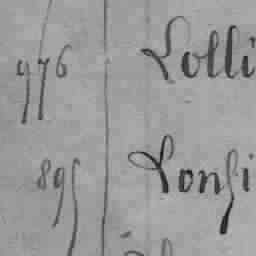 976 Lolli
895 Lonſi